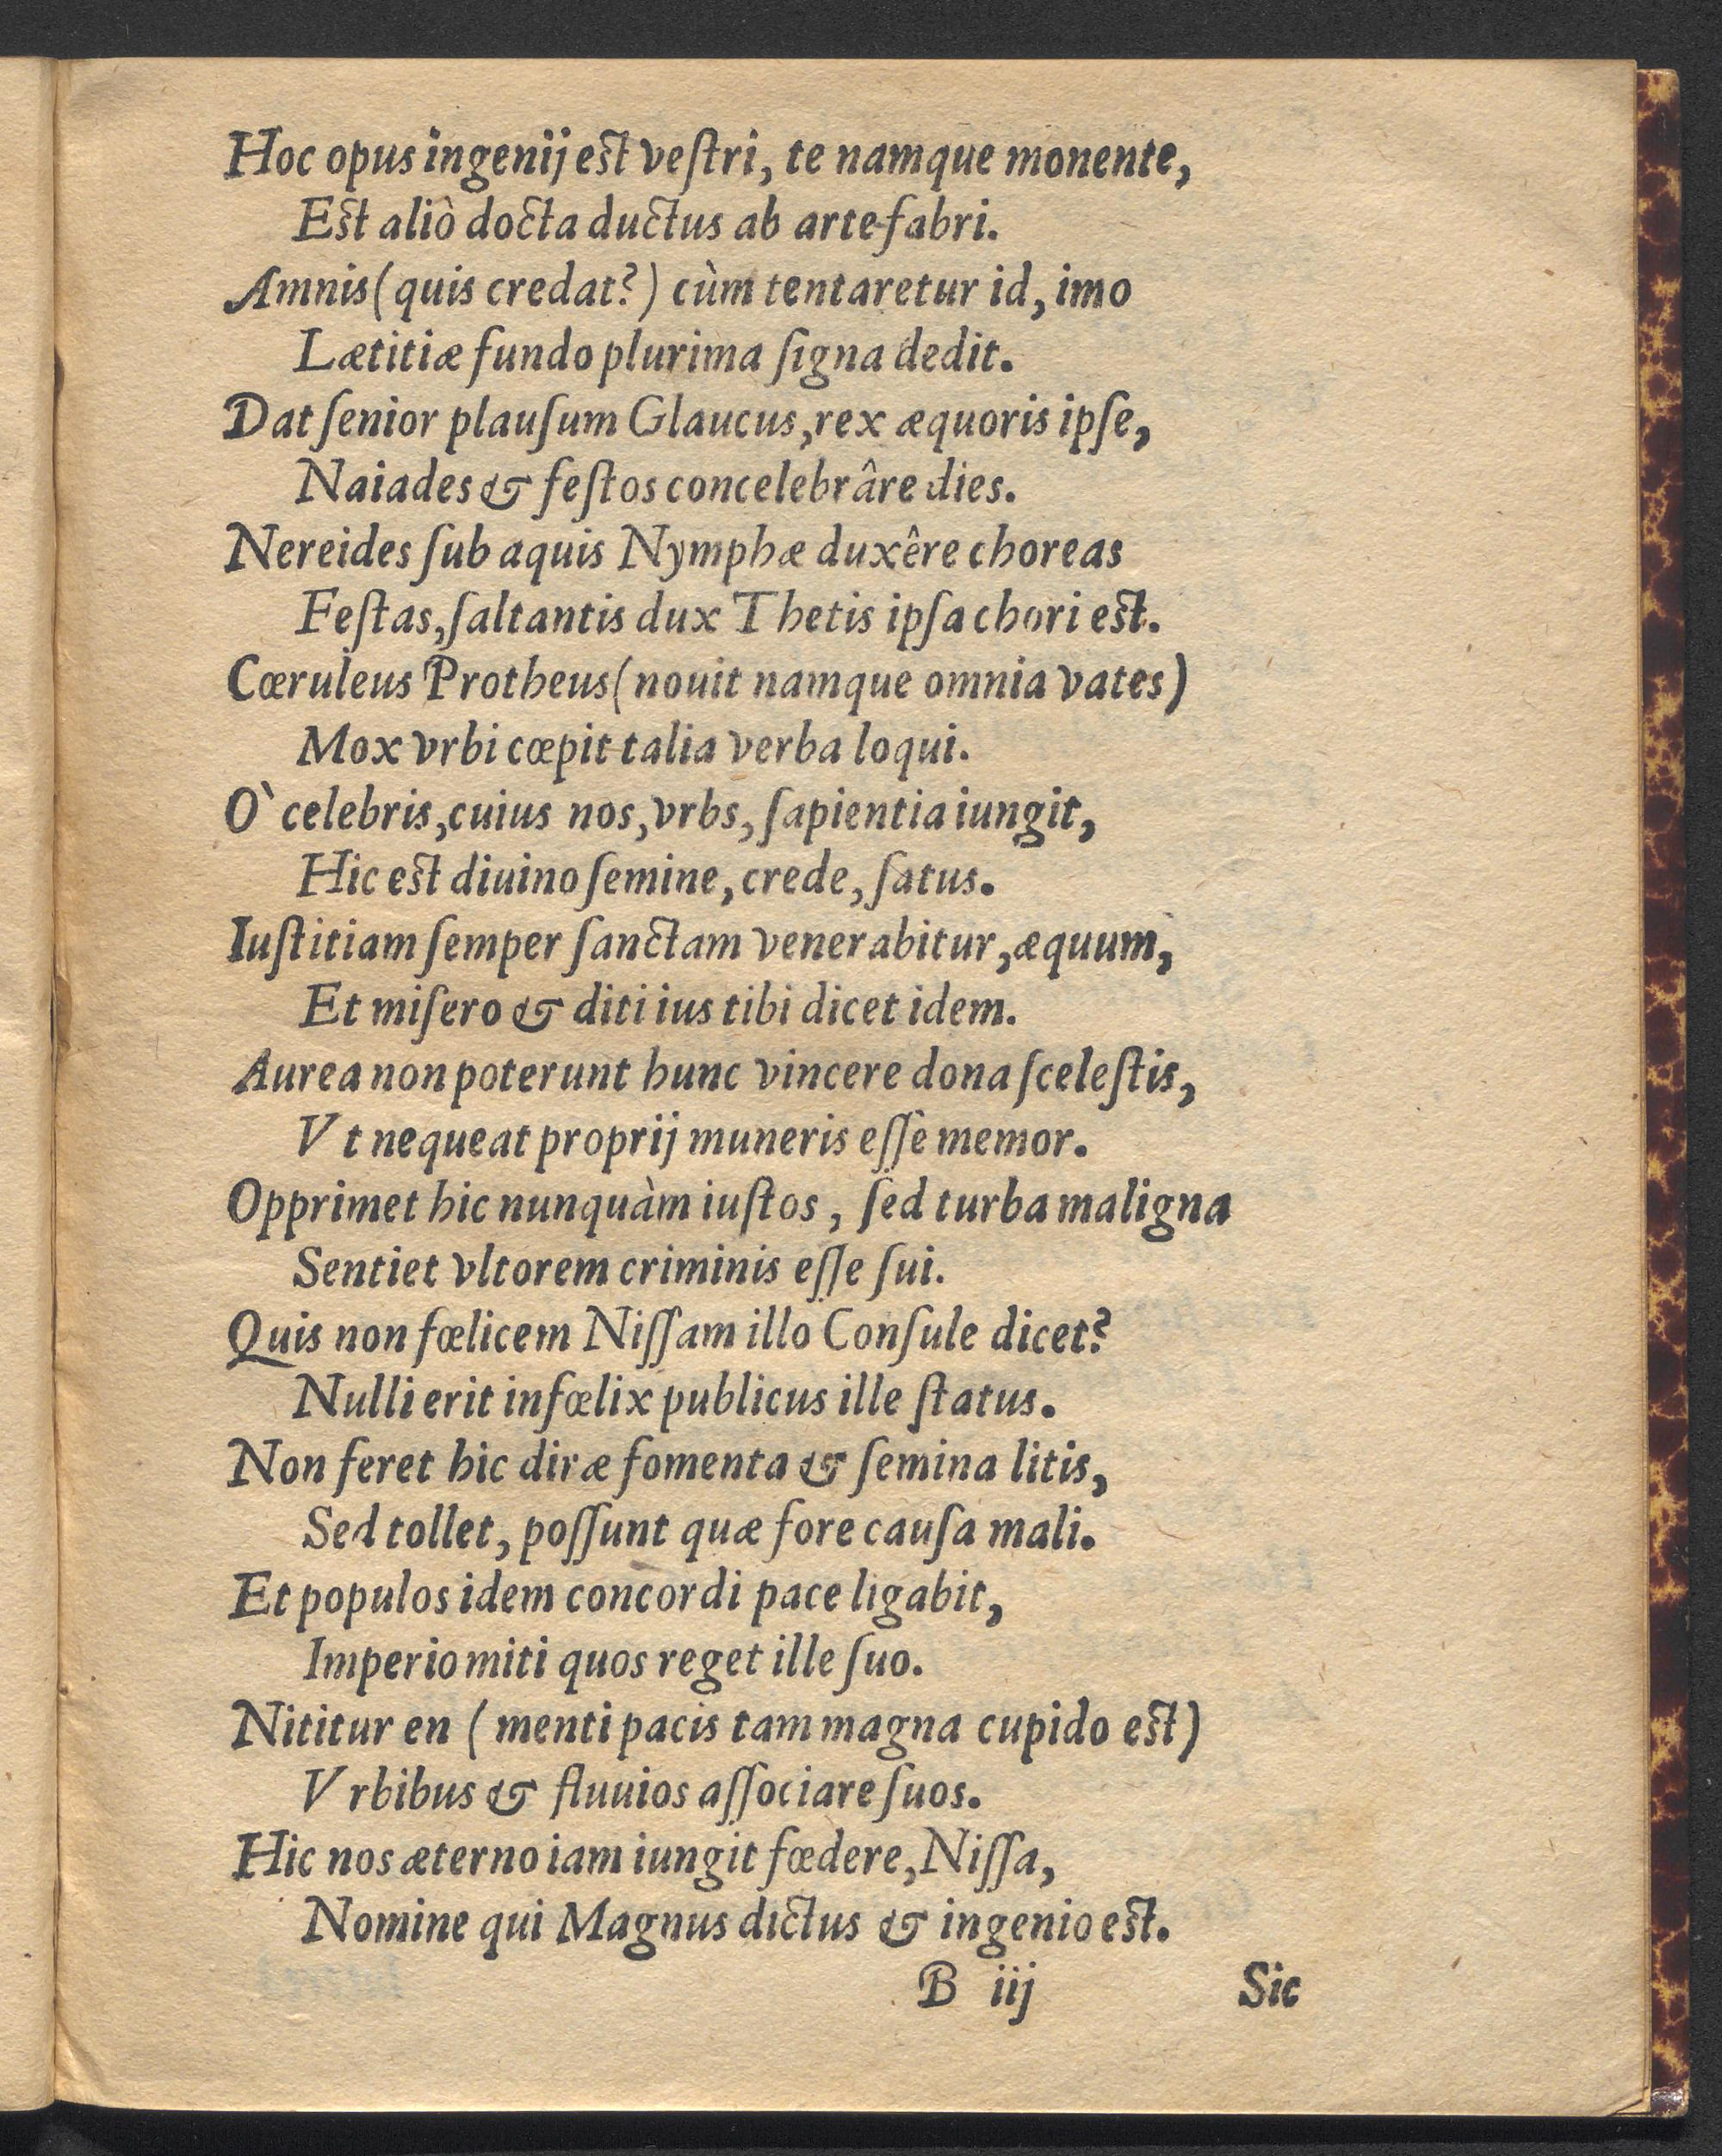 Hoc opus ingenij est veſtri, te namque monente,
Est aliò docta ductus ab arte fabri.
Amnis (quis credat?) cùm tentaretur id, imo
Lætitiæ fundo plurima ſigna dedit.
Dat ſenior plauſum Glaucus, rex æquoris ipſe,
Naiades & feſtos concelebrâre dies.
Nereides ſub aquis Nymphæ duxêre choreas
Feſtas, ſaltantis dux Thetis ipſa chori est.
Cœruleus Protheus (nouit namque omnia vates)
Mox vrbi cœpit talia verba loqui.
O` celebris, cuius nos, vrbs, ſapientia iungit,
Hic est diuino ſemine, crede, ſatus.
Iuſtitiam ſemper ſanctam venerabitur, æquum,
Et miſero & diti ius tibi dicet idem.
Aurea non poterunt hunc vincere dona ſceleſtis,
Vt nequeat proprij muneris eſſe memor.
Opprimet hic nunquàm iuſtos, ſed turba maligna
Sentiet vltorem criminis eſſe ſui.
Quis non fœlicem Niſſam illo Conſule dicet?
Nulli erit infœlix publicus ille ſtatus.
Non feret hic diræ fomenta & ſemina litis,
Sed tollet, poſſunt quæ fore cauſa mali.
Et populos idem concordi pace ligabit,
Imperio miti quos reget ille ſuo.
Nititur en (menti pacis tam magna cupido est)
Vrbibus & fluuios aſſociare ſuos.
Hic nos æterno iam iungit fœdere, Niſſa,
Nomine qui Magnus dictus & ingenio est.
B iij Sic